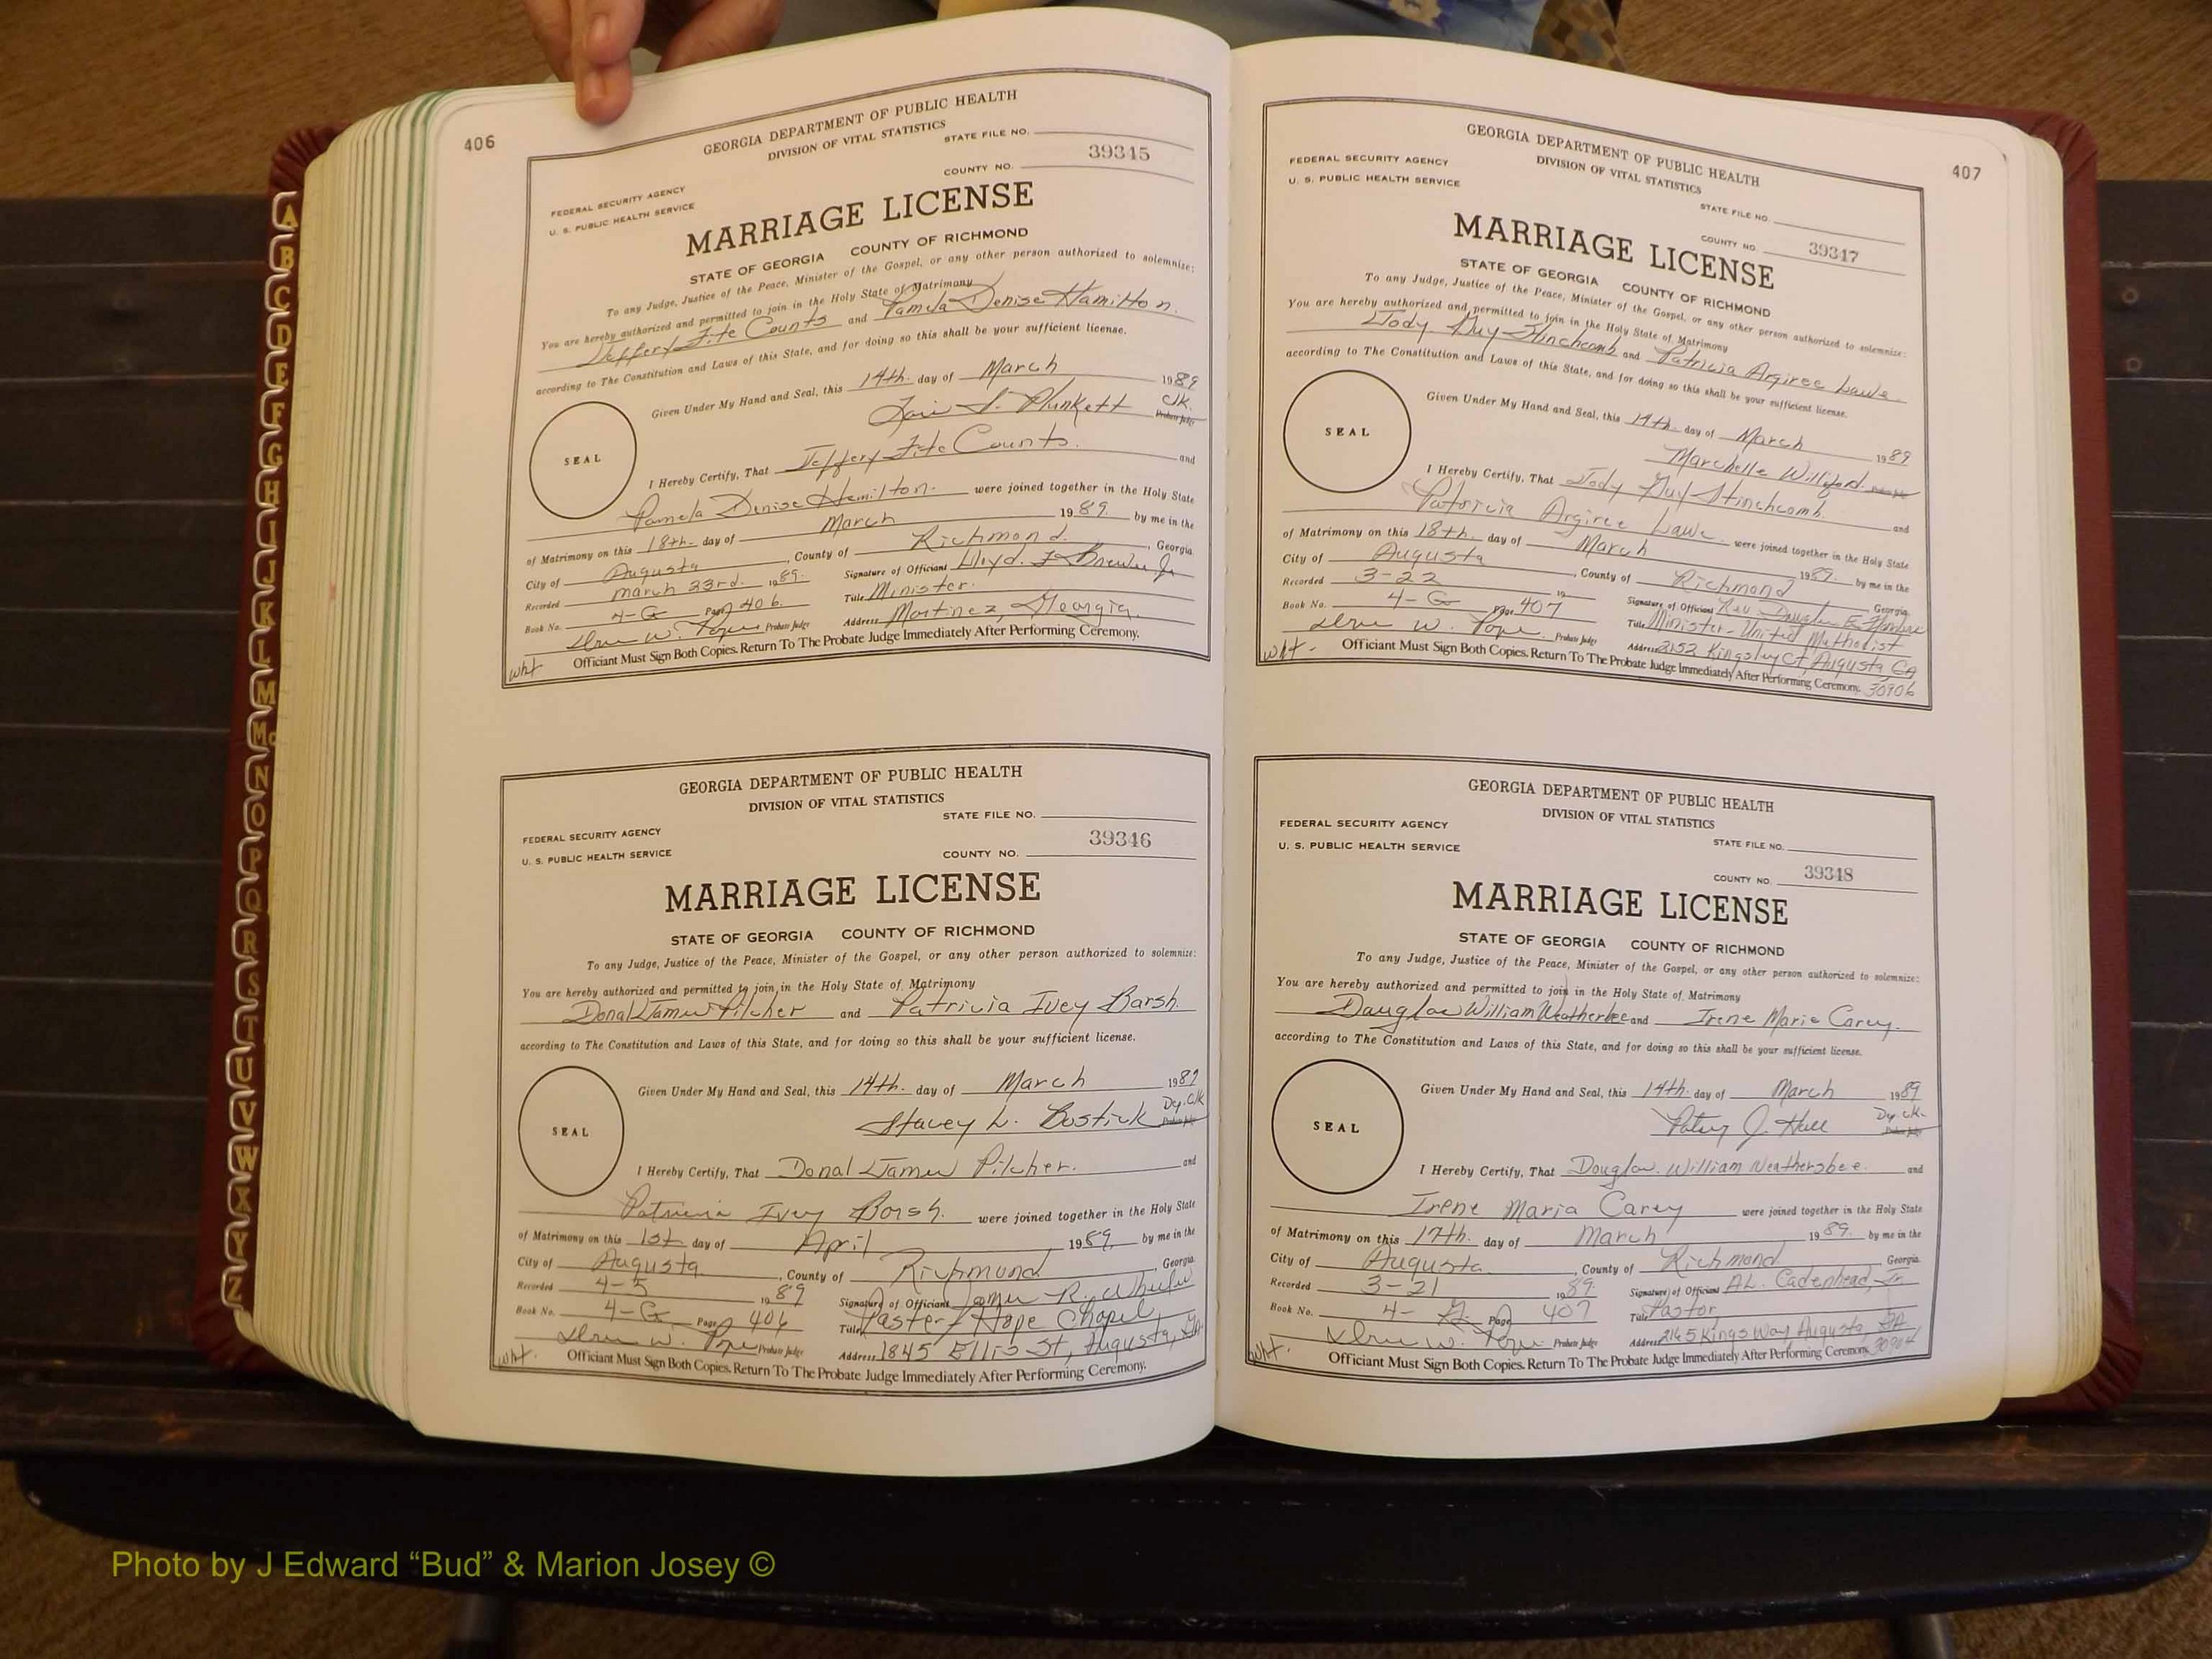 406
GEORGIA DEPARTMENT OF PUBLIC HEALTH
DIVISION OF VITAL STATISTICS
STATE FILE NO.
COUNTY NO. 39345
FEDERAL SECURITY AGENCY
U. S. PUBLIC HEALTH SERVICE
MARRIAGE LICENSE
STATE OF GEORGIA COUNTY OF RICHMOND
To any Judge, Justice of the Peace, Minister of the Gospel, or any other person authorized to solemnize:
You are hereby authorized and permitted to join in the Holy State of Matrimony
Jeffery Fite Counts and Pamela Denise Hamilton.
according to The Constitution and Laws of this State, and for doing so this shall be your sufficient license.
Given Under My Hand and Seal, this 14th. day of March 1989
Lori S. Plunkett Clk. Probate Judge
SEAL
I Hereby Certify, That Jeffery Fite Counts. and
Pamela Denise Hamilton. were joined together in the Holy State
of Matrimony on this 18th. day of March 1989. by me in the
City of Augusta, County of Richmond. , Georgia
Recorded March 23rd. 1989. Signature of Officiant Lloyd. Jr
Book No. 4-G Page 406. Title Minister.
W. Pope Probate Judge Address Martinez, Georgia.
Officiant Must Sign Both Copies. Return To The Probate Judge Immediately After Performing Ceremony.
wht
GEORGIA DEPARTMENT OF PUBLIC HEALTH
DIVISION OF VITAL STATISTICS
STATE FILE NO.
FEDERAL SECURITY AGENCY
U. S. PUBLIC HEALTH SERVICE
COUNTY NO. 39346
MARRIAGE LICENSE
STATE OF GEORGIA COUNTY OF RICHMOND
To any Judge, Justice of the Peace, Minister of the Gospel, or any other person authorized to solemnize:
You are hereby authorized and permitted to join in the Holy State of Matrimony
Donal James Pilcher and Patricia Ivey Barsh.
according to The Constitution and Laws of this State, and for doing so this shall be your sufficient license.
Given Under My Hand and Seal, this 14th. day of March 1989
Stacey L. Bostick Dy. Clk Probate Judge
SEAL
I Hereby Certify, That Donal James Pilcher. and
Patricia Ivey Barsh. were joined together in the Holy State
of Matrimony on this 1st day of April 1989. by me in the
City of Augusta, County of Richmond , Georgia
Recorded 4-5 1989 Signature of Officiant James R. Wheeler
Book No. 4-G Page 406 Title Pastor Hope Chapel
W. Pope Probate Judge Address 1845 Ellis St, Augusta, GA
Officiant Must Sign Both Copies. Return To The Probate Judge Immediately After Performing Ceremony.
wht.
407
GEORGIA DEPARTMENT OF PUBLIC HEALTH
DIVISION OF VITAL STATISTICS
FEDERAL SECURITY AGENCY
U. S. PUBLIC HEALTH SERVICE
STATE FILE NO.
COUNTY NO. 39347
MARRIAGE LICENSE
STATE OF GEORGIA COUNTY OF RICHMOND
To any Judge, Justice of the Peace, Minister of the Gospel, or any other person authorized to solemnize:
You are hereby authorized and permitted to join in the Holy State of Matrimony
Jody Guy Stinchcomb and Patricia Argiree Lawe.
according to The Constitution and Laws of this State, and for doing so this shall be your sufficient license.
Given Under My Hand and Seal, this 14th. day of March 1989
Marchelle Williford. Probate Judge
SEAL
I Hereby Certify, That Jody Guy Stinchcomb. and
Patricia Argiree Lawe. were joined together in the Holy State
of Matrimony on this 18th. day of March 1989. by me in the
City of Augusta, County of Richmond Georgia
Recorded 3-22 19 Signature of Officiant Rev. Douglas E.
Book No. 4-G Page 407 Title Minister-United Methodist
W. Pope. Probate Judge Address 2152 Kingsley Ct, Augusta, GA
Officiant Must Sign Both Copies. Return To The Probate Judge Immediately After Performing Ceremony. 30906
wht-
GEORGIA DEPARTMENT OF PUBLIC HEALTH
DIVISION OF VITAL STATISTICS
FEDERAL SECURITY AGENCY
U. S. PUBLIC HEALTH SERVICE
STATE FILE NO.
COUNTY NO. 39348
MARRIAGE LICENSE
STATE OF GEORGIA COUNTY OF RICHMOND
To any Judge, Justice of the Peace, Minister of the Gospel, or any other person authorized to solemnize:
You are hereby authorized and permitted to join in the Holy State of Matrimony
Douglas William Weathersbee and Irene Marie Carey.
according to The Constitution and Laws of this State, and for doing so this shall be your sufficient license.
Given Under My Hand and Seal, this 14th. day of March 1989
Patsy J. Hall Dy. Clk. Probate Judge
SEAL
I Hereby Certify, That Douglas. William Weathersbee. and
Irene Maria Carey were joined together in the Holy State
of Matrimony on this 17th. day of March 1989. by me in the
City of Augusta, County of Richmond , Georgia
Recorded 3-21 1989. Signature of Officiant A.L. Cadenhead, Jr.
Book No. 4-G. Page 407 Title Pastor
W. Pope Probate Judge Address 2165 Kings Way Augusta, GA
Officiant Must Sign Both Copies. Return To The Probate Judge Immediately After Performing Ceremony. 30904
wht.
A
B
C
D
E
F
G
H
I
J
K
L
M
Mc
N
O
P
Q
R
S
T
U
V
W
X
Y
Z
Photo by J Edward “Bud” & Marion Josey ©